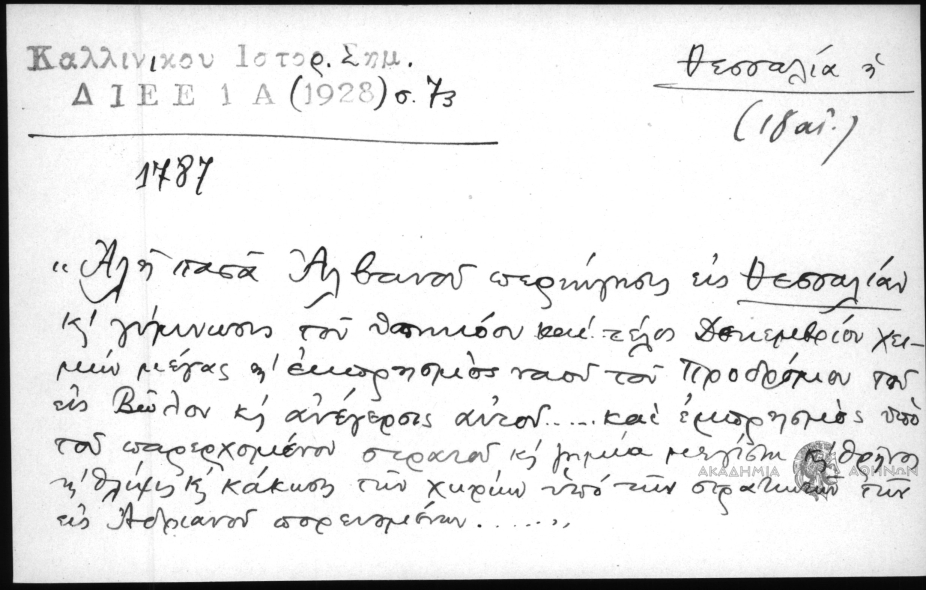 Καλλινικου Ιστορ. Σημ.
ΔΙΕΕ 1 Α (1928) σ. 73
Θεσσαλία ἡ
(18 αἰ.)
1787
"Ἀλῆ πασᾶ Ἀλβανοῦ περιήγησις εἰς Θεσσαλίαν
κ' γύμνωσις τοῦ καὶ τέλος Δεκεμβρίου χει-
μὼν μέγας κ' ἐμπρησμὸς ναοῦ τοῦ Προδρόμου τοῦ
εἰς Βῶλον κὴ ἀνέγερσις αὐτοῦ..... καὶ ἐμπρησμὸς ὑπὸ
τοῦ παρερχομένου στρατοῦ κὴ ζημία μεγίστη κὴ θρῆνος
κ' θλῖψις κὴ κάκωσις τῶν χωρίων ὑπὸ τῶν στρατιωτῶν τῶν
εἰς Ἀδριανοῦ πορευομένων.......,,
ΑΚΑΔΗΜΙΑ ΑΘΗΝΩΝ